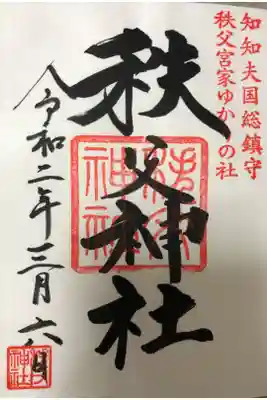 知知夫国総鎮守
秩父宮家ゆかりの社
秩父神社
令和二年三月六日